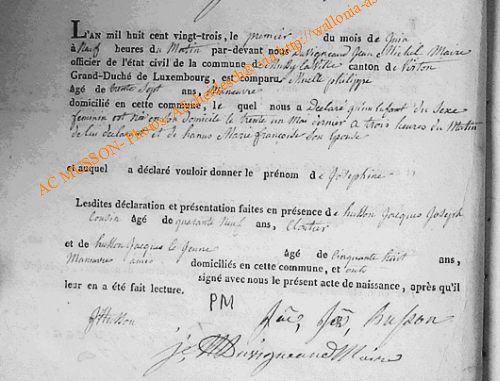 L'AN mil huit cent vingt-trois, le premier du mois de Juin
à neuf heures du Matin par-devant nous Duvigneaud Jean Michel Maire
officier de l'état civil de la commune de la Ville canton de Virton
Grand-Duché de Luxembourg, est comparu philippe
âgé de trente Sept ans, Manœuvre
domicilié en cette commune, le quel nous a Déclaré qu'un Enfant du Sexe
feminin est né en son domicile le trente un Mai dernier a trois heures du Matin
de lui declarant et de hanus Marie francoise Son Epouse
et auquel a déclaré vouloir donner le prénom de Josephine
Lesdites déclaration et présentation faites en présence de husson Jacques Joseph
Cousin âgé de quarante neuf ans, Cloutier
et de husson Jacques le Jeune âgé de Cinquante huit ans,
Manœuvre amis domiciliés en cette commune, et ont
signé avec nous le présent acte de naissance, après qu'il
leur en a été fait lecture.
PM
JHusson
husson
Duvigneaud Maire
AC MUSSON- Photo Andriessche via http://wallonia-as